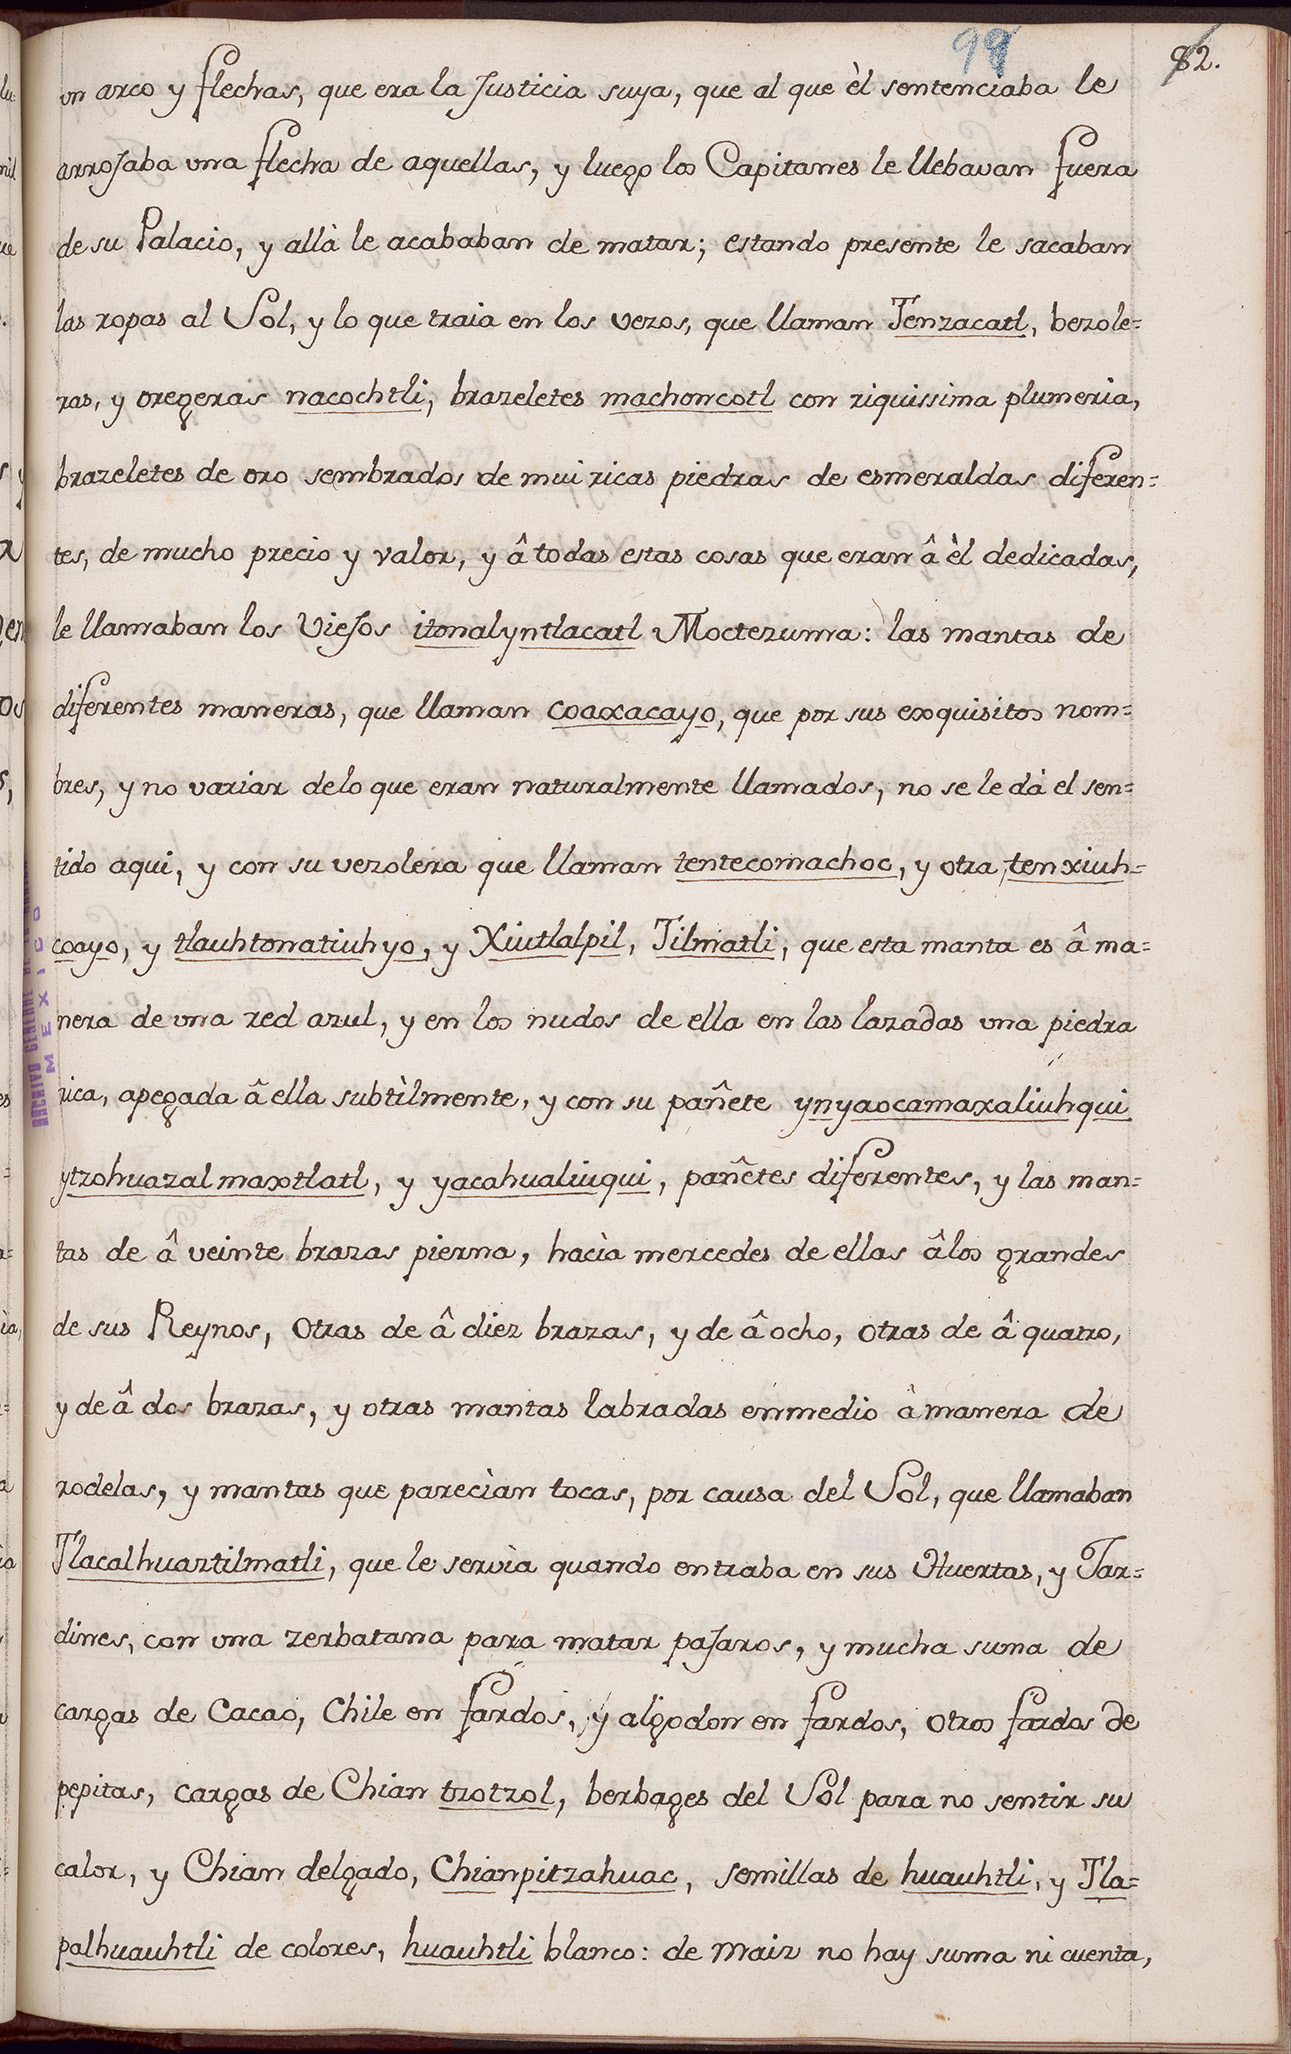 99
82.
vn arco y flechas, que era la Justicia suya, que al que èl sentenciaba le
arroJaba vna flecha de aquellas, y luego los Capitanes le llebavan fuera
de su Palacio, y allà le acababan de matar; estando presente le sacaban
las ropas al Sol, y lo que traia en los vezos, que llaman Tenzacatl, bezole=
ras, y oregeras nacochtli, brazeletes machoncotl con riquissima plumeria,
brazeletes de oro sembrados de mui ricas piedras de esmeraldas diferen=
tes, de mucho precio y valor, y â todas estas cosas que eran â èl dedicadas,
le llamaban los VieJos itonalyntlacatl Moctezuma: las mantas de
diferentes maneras, que llaman coaxacayo, que por sus exquisitos nom=
bres, y no variar de lo que eran naturalmente llamados, no se le dà el sen=
tido aqui, y con su vezolera que llaman tentecomachoc, y otra, tenxiuh=
coayo, y tlauhtonatiuhyo, y Xiutlalpil, Tilmatli, que esta manta es â ma=
nera de vna red azul, y en los nudos de ella en las lazadas vna piedra
rica, apegada â ella subtìlmente, y con su pañete ynyaocamaxaliuhqui
ytzohuazal maxtlatl, y yacahualiuqui, pañetes diferentes, y las man=
tas de â veinte brazas pierna, hacìa mercedes de ellas â los grandes
de sus Reynos, otras de â diez brazas, y de â ocho, otras de â quatro,
y de â dos brazas, y otras mantas labradas enmedio â manera de
rodelas, y mantas que parecìan tocas, por causa del Sol, que llamaban
Tlacalhuaztilmatli, que le servìa quando entraba en sus Huertas, y Jar=
dines, con vna zerbatana para matar paJaros, y mucha suma de
cargas de Cacao, Chile en fardos, y algodon en fardos, otros fardos de
pepitas, cargas de Chian tzotzol, berbages del Sol para no sentir su
calor, y Chian delgado, Chianpitzahuac, semillas de huauhtli, y Tla=
palhuauhtli de colores, huauhtli blanco: de maiz no hay suma ni cuenta,
MEXICO